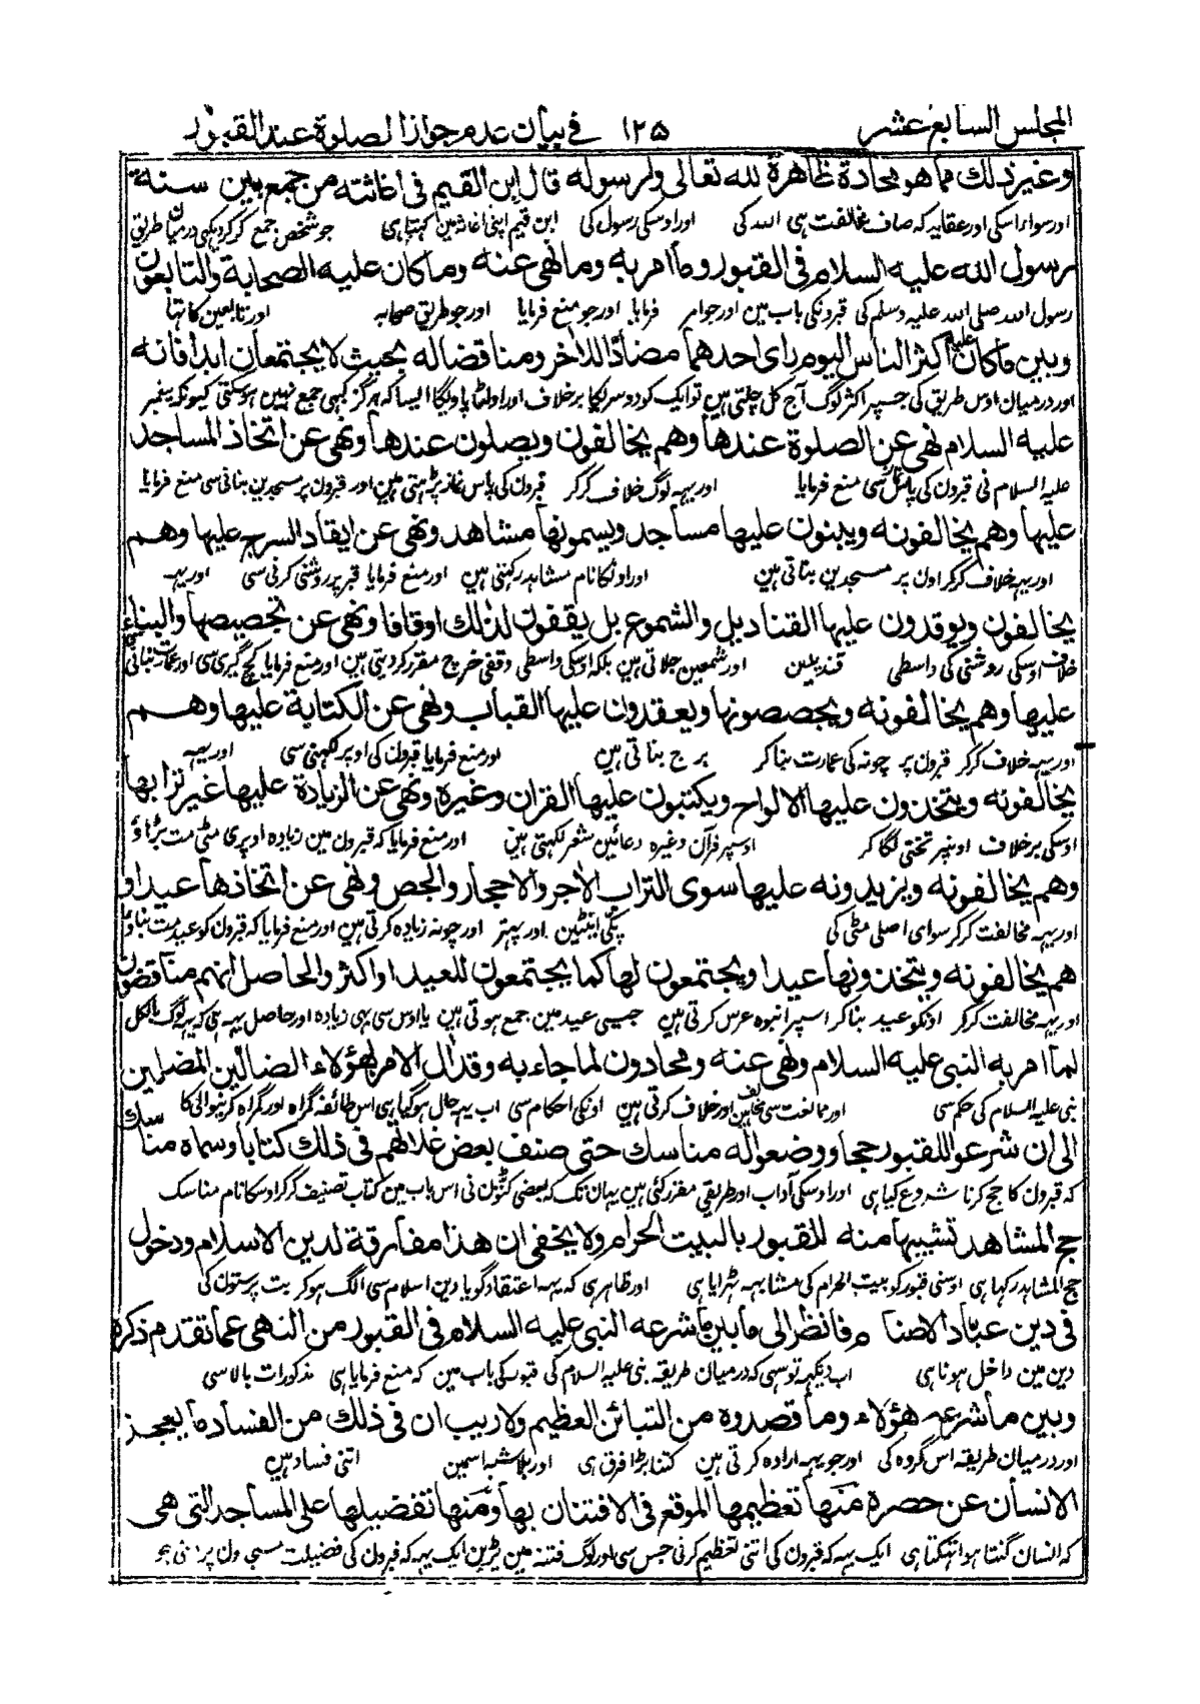 المجلس السابع عشر ۱۲۵ فے بیان عدم جواز الصلوة عند القبور
وغیر ذلك مما هو محادة ظاهرة لله تعالى ولرسوله قال ابن القیم فی اغاثته من جمع بین سنة
اور سواء اسکی اور عقاید کہ صاف مخالفت ہی اللہ کی اور اوسکی رسول کی ابن قیم اپنی اغاثہ مین کہتا ہی جو شخص جمع کر کر دیکھی درمیان طریق
رسول الله علیه السلام فی القبور وما امر به وما نهی عنه وما کان علیه الصحابة والتابعون
رسول اللہ صلی اللہ علیہ وسلم کی قبرونکی باب مین اور جو امر فرمایا اور جو منع فرمایا اور جو طریق صحابہ اور تابعین کا تہا
وبین ما کان علیه اکثر الناس الیوم رای احدهما مضادا للاخر ومناقضا له بحیث لا یجتمعان ابدا فانه
اور درمیان اوس طریق کی جسپر اکثر لوگ آج کل چلتی ہین تو ایک کو دوسریکا برخلاف اور اولٹا پاویگا ایسا کہ ہرگز کبہی جمع نہین ہو سکتی کیونکہ پیغمبر
علیه السلام نهی عن الصلوة عندها وهم یخالفون ویصلون عندها ونهی عن اتخاذ المساجد
علیہ السلام نی قبرون کی پاس نماز سی منع فرمایا اور یہہ لوگ خلاف کر کر قبرون کی پاس نماز پڑہتی ہین اور قبرون پر مسجدین بنانی سی منع فرمایا
علیها وهم یخالفونه ویبنون علیها مساجد ویسمونها مشاهد ونهی عن ایقاد السرج علیها وهم
اور یہہ خلاف کر کر اون پر مسجدین بناتی ہین اور اونکا نام مشاہد رکہتی ہین اور منع فرمایا قبر پر روشنی کرنی سی اور یہہ
یخالفون ویوقدون علیها القنادیل والشموع بل یقفون لذلك اوقافا ونهی عن تجصیصها والبناء
خلاف اوسکی روشنی کی واسطی قندیلین اور شمعین جلاتی ہین بلکہ اوسکی واسطی وقفی خرچ مقرر کر دیتی ہین اور منع فرمایا گچ گیری سی اور عمارت بنانی
علیها وهم یخالفونه ویجصصونها ویعقدون علیها القباب ونهی عن الکتابة علیها وهم
اور یہہ خلاف کر کر قبرون پر چونہ کی عمارت بنا کر برج بناتی ہین اور منع فرمایا قبرون کی اوپر لکہنی سی اور یہہ
یخالفونه ویتخذون علیها الالواح ویکتبون علیها القران وغیره ونهی عن الزیادة علیها غیر ترابها
اوسکی برخلاف اونپر تختی لگا کر اوسپر قرآن وغیرہ دعائین شعر لکہتی ہین اور منع فرمایا کہ قبرون مین زیادہ اوپری مٹی مت بڑہاؤ
وهم یخالفونه ویزیدونه علیها سوی التراب الاجر والاحجار والجص ونهی عن اتخاذها عیدا و
اور یہہ مخالفت کر کر سوای اصلی مٹی کی پکی اینٹین اور پتہر اور چونہ زیادہ کرتی ہین اور منع فرمایا کہ قبرون کو عید مت بناؤ
هم یخالفونه ویتخذونها عیدا ویجتمعون لها کما یجتمعون للعید او اکثر والحاصل انهم مناقضون
اور یہہ مخالفت کر کر اونکو عید بنا کر اسپر انبوہ عرس کرتی ہین جیسی عید مین جمع ہوتی ہین یا اوس سی بہی زیادہ اور حاصل یہہ ہی کہ یہہ لوگ بالکل
لما امر به النبی علیه السلام ونهی عنه ومحادون لما جاء به وقد آل الامر لهؤلاء الضالین المضلین
نبی علیہ السلام کی حکم سی اور ممانعت سی مخالف ہین اور خلاف کرتی ہین اونکی احکام سی اب یہہ حال ہو گیا ہی اس طائفہ گمراہ اور گمراہ کرنیوالی کا
الی ان شرعوا للقبور حجا ووضعوا له مناسك حتی صنف بعض غلاتهم فی ذلك کتابا وسماه مناسك
کہ قبرون کا حج کرنا شروع کیا ہی اور اوسکی آداب اور طریقی مقرر کئی ہین یہان تک کہ بعضی کٹرون نی اس باب مین کتاب تصنیف کر کر اوسکا نام مناسک
حج المشاهد تشبیها منه للقبور بالبیت الحرام ولا یخفی ان هذا مفارقة لدین الاسلام ودخول
حج المشاہد رکہا ہی اوسنی قبور کو بیت الحرام کی مشابہہ ٹہرایا ہی اور ظاہر ہی کہ یہہ اعتقاد گویا دین اسلام سی الگ ہو کر بت پرستون کی
فی دین عباد الاصنام فانظر الی ما بین ما شرعه النبی علیه السلام فی القبور من النهی عما تقدم ذکره
دین مین داخل ہونا ہی اب دیکہہ تو سہی کہ درمیان طریقہ نبی علیہ السلام کی قبور کی باب مین کہ منع فرمایا ہی مذکورات بالا سی
وبین ما شرعه هؤلاء وما قصدوه من التبائن العظیم ولا ریب ان فی ذلك من الفساد ما یعجز
اور درمیان طریقہ اس گروہ کی اور جو یہہ ارادہ کرتی ہین کتنا بڑا فرق ہی اور بلا شبہہ اسمین اتنی فساد ہین
الانسان عن حصره منها تعظیمها الموقع فی الافتنان بها ومنها تفضیلها علی المساجد التی هی
کہ انسان گنتا ہوا تہکتا ہی ایک یہہ کہ قبرون کی اتنی تعظیم کرنی جس سی اور لوگ فتنہ مین پڑین ایک یہہ کہ قبرون کی فضیلت مسجدون پر